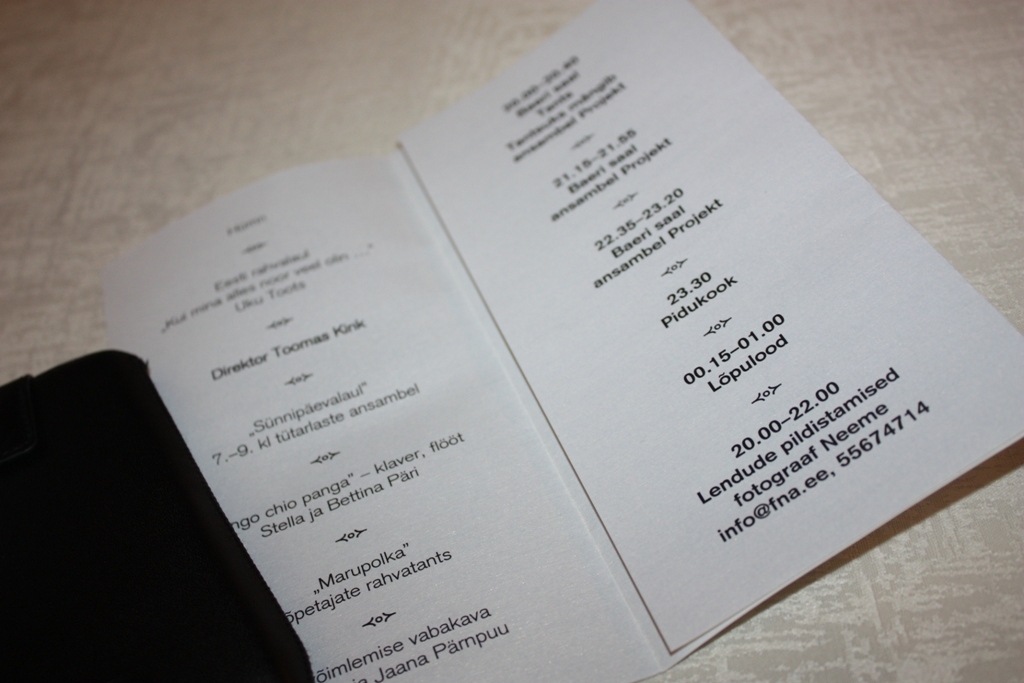 Hümn
Eesti rahvalaul
„Kui mina alles noor veel olin ...”
Uku Toots
Direktor Toomas Kink
„Sünnipäevalaul”
7.–9. kl tütarlaste ansambel
ngo chio panga” – klaver, flööt
Stella ja Bettina Päri
„Marupolka”
õpetajate rahvatants
õimlemise vabakava
ja Jaana Pärnpuu
20.00–20.40
Baeri saal
Tants
mängib
ansambel Projekt
21.15–21.55
Baeri saal
ansambel Projekt
22.35–23.20
Baeri saal
ansambel Projekt
23.30
Pidukook
00.15–01.00
Lõpulood
20.00–22.00
Lendude pildistamised
fotograaf Neeme
info@fna.ee, 55674714